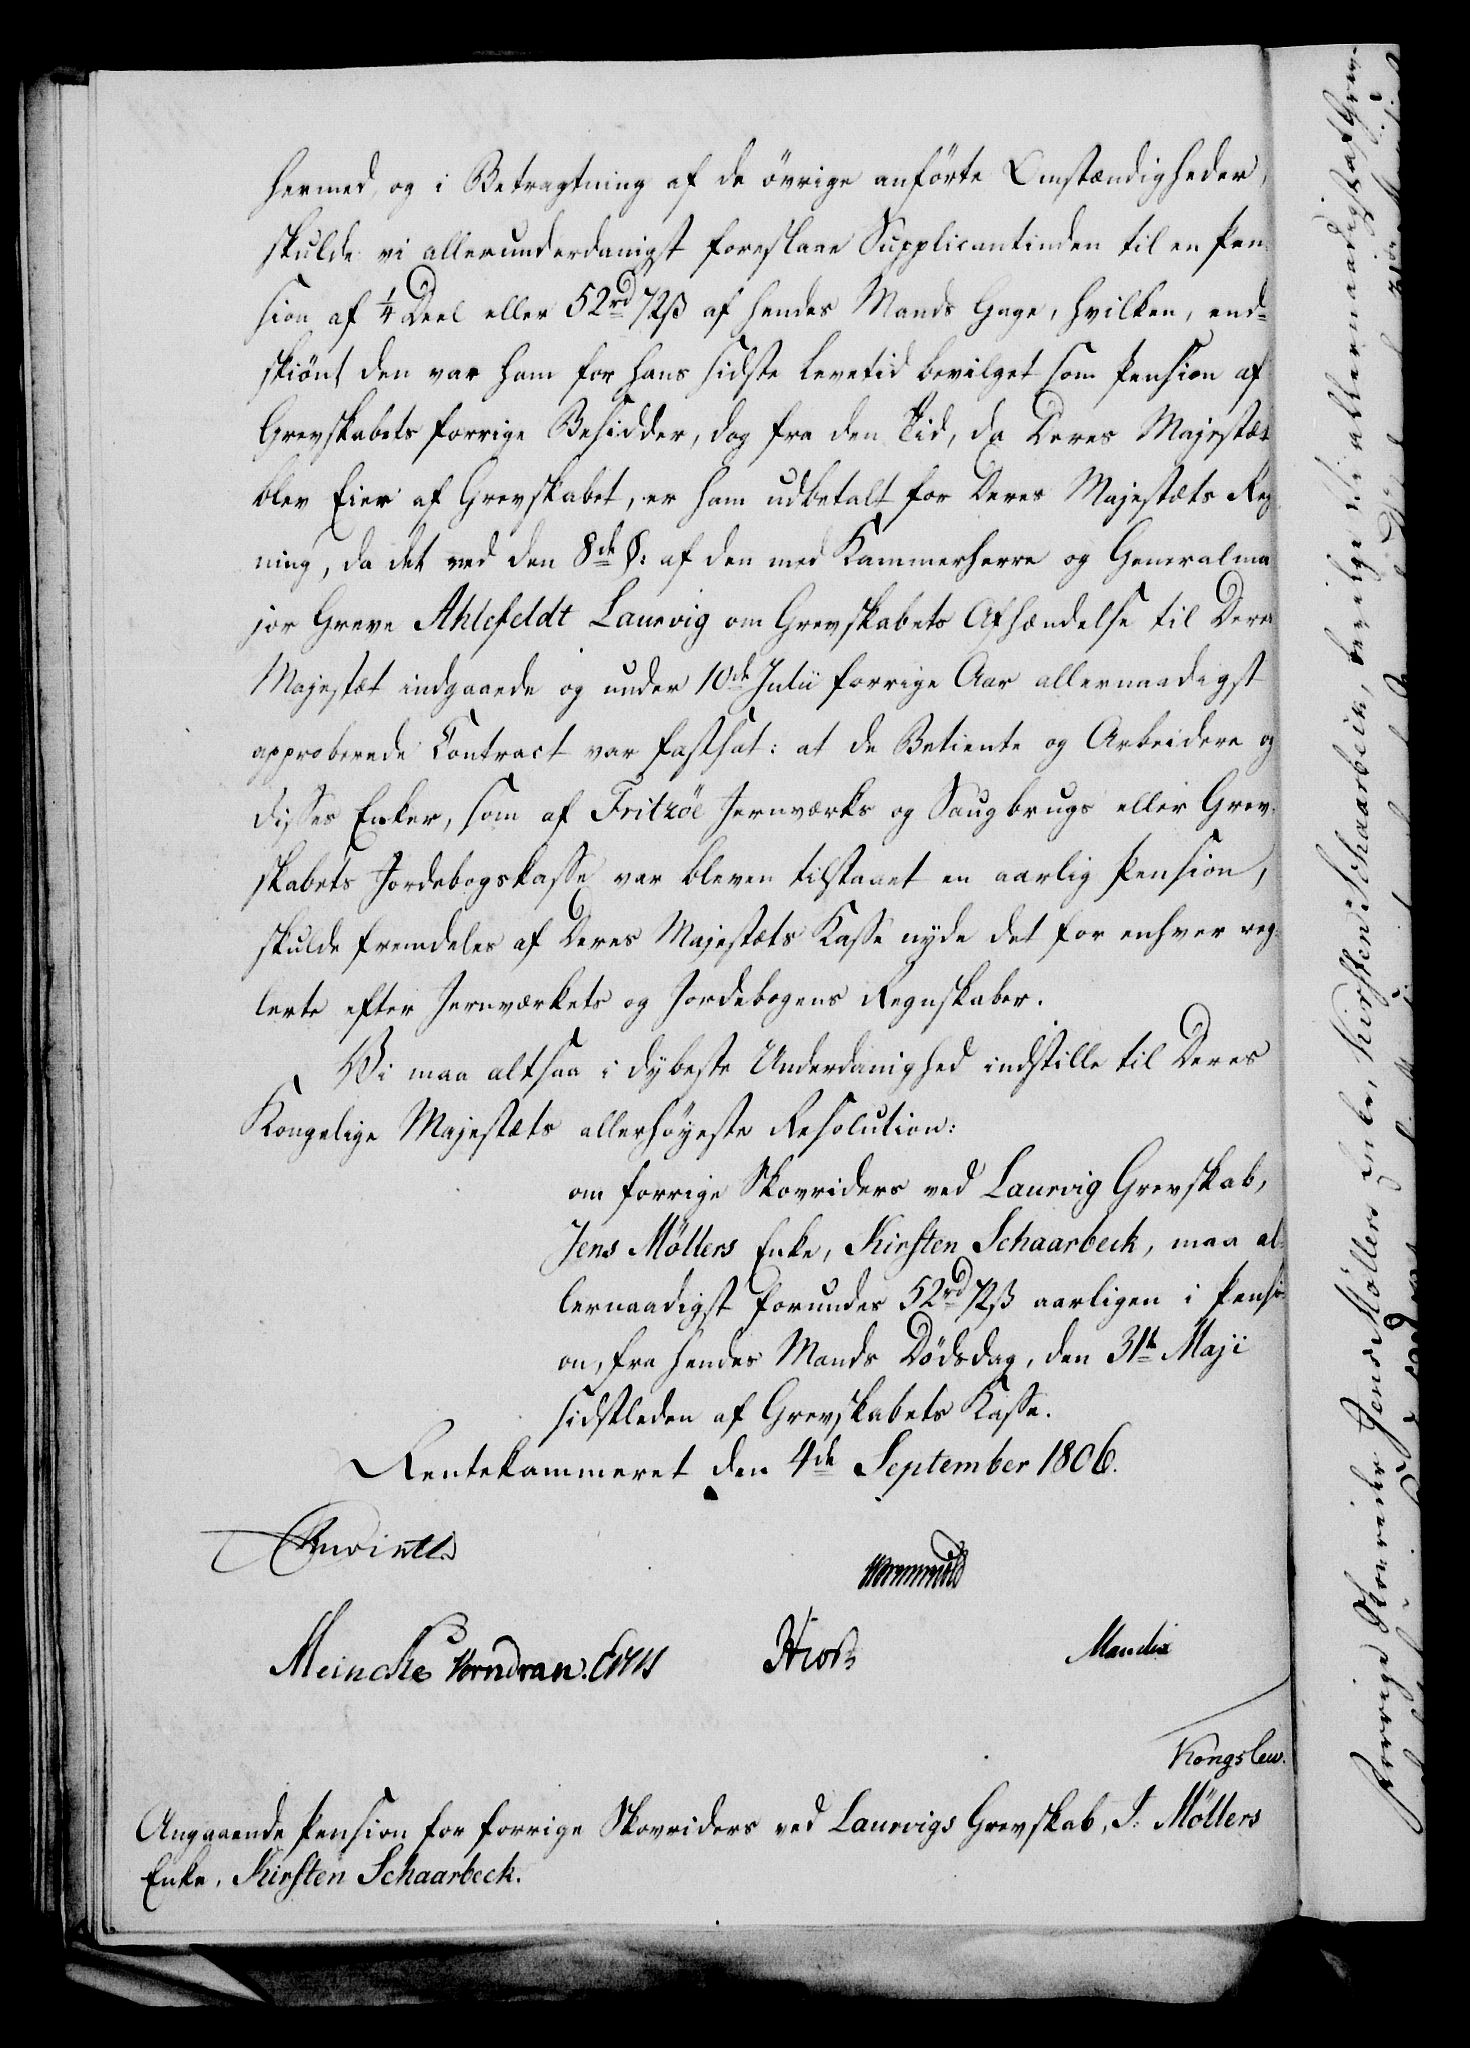 hermed, og i Betragtning af de øvrige anförte Omstændigheder,
skulde vi allerunderdanigst foreslaae Supplicantinden til en Pen-
sion af 1/4 Deel eller 52 rd 72 ß af hendes Mands Gage, hvilken, end-
skiönt den var ham for hans sidste Levetid bevilget som Pension af
Grevskabets forrige Besidder, dog fra den Tid, da Deres Majestæt
blev Eier af Grevskabet, er ham udbetalt for Deres Majestæts Reg-
ning, da det ved den 8de §: af den med Kammerherre og Generalma-
jor Greve Ahlefeldt Laurvig om Grevskabets Afhændelse til Deres
Majestæt indgaaede og under 10de Julii forrige Aar allernaadigst
approberede Contract var fastsat: at de Betiente og Arbeidere og
disses Enker, som af Fritzöe Jernværks og Saugbrugs eller Grev-
skabets Jordebogskasse var bleven tilstaaet en aarlig Pension,
skulde fremdeles af Deres Majestæts Kasse nyde det for enhver reg-
lerte efter Jernværkets og Jordebogens Regnskaber.
Vi maa altsaa i dybeste Underdanighed indstille til Deres
Kongelige Majestæts allerhöyeste Resolution:
om forrige Skovriders ved Laurvig Grevskab,
Jens Möllers Enke, Kirsten Schaarbeck, maa al-
lernaadigst forundes 52 rd 72 ß aarligen i Pensi-
on, fra hendes Mands Dödsdag, den 31te Maji
sidstleden af Grevskabets Kasse.
Rentekammeret den 4de September 1806.
Meincke Vorndran.
Kongslew.
Angaaende Pension for forrige Skovriders ved Laurvigs Grevskab, J. Möllers
Enke, Kirsten Schaarbeck.
forrige Skovrider Jens Möllers Enke, Kirsten Schaarbeck,